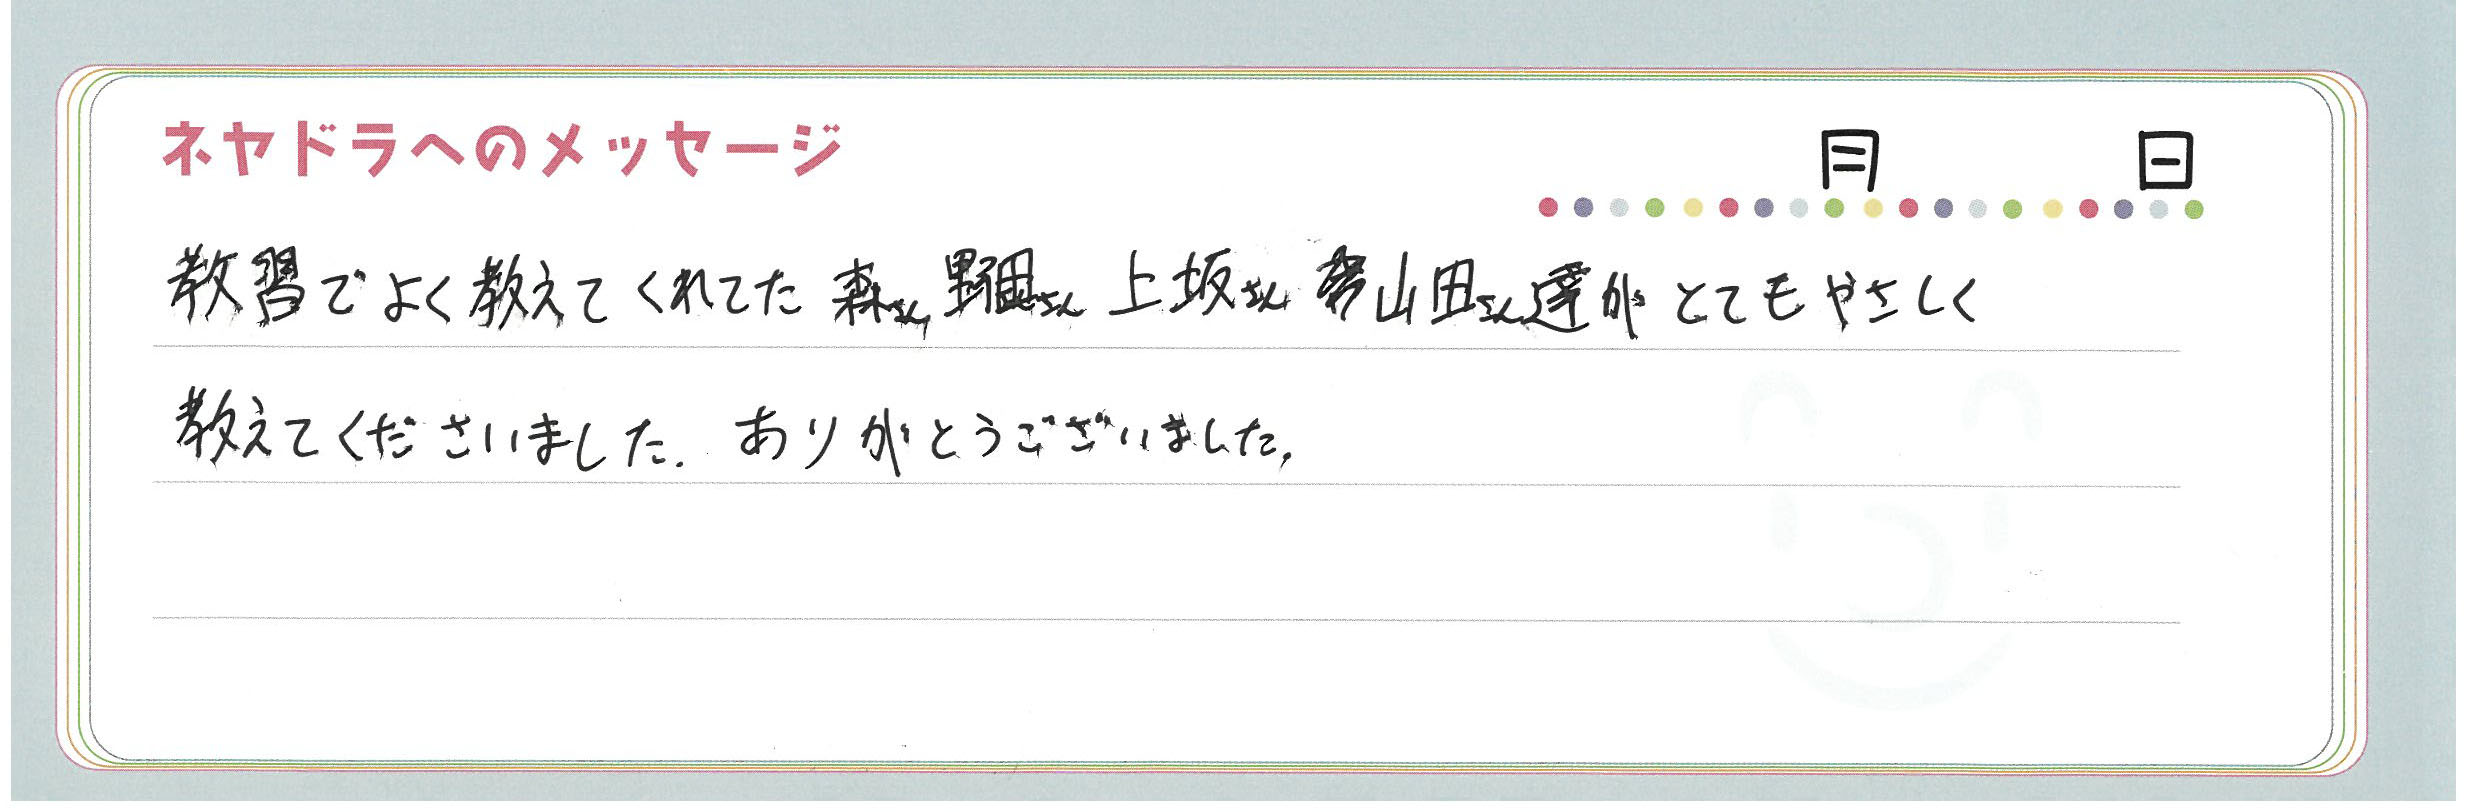 ネヤドラへのメッセージ
月 日
教習でよく教えてくれてた 森さん 野田さん 上坂さん 山田さん達がとてもやさしく
教えてくださいました. ありがとうございました.